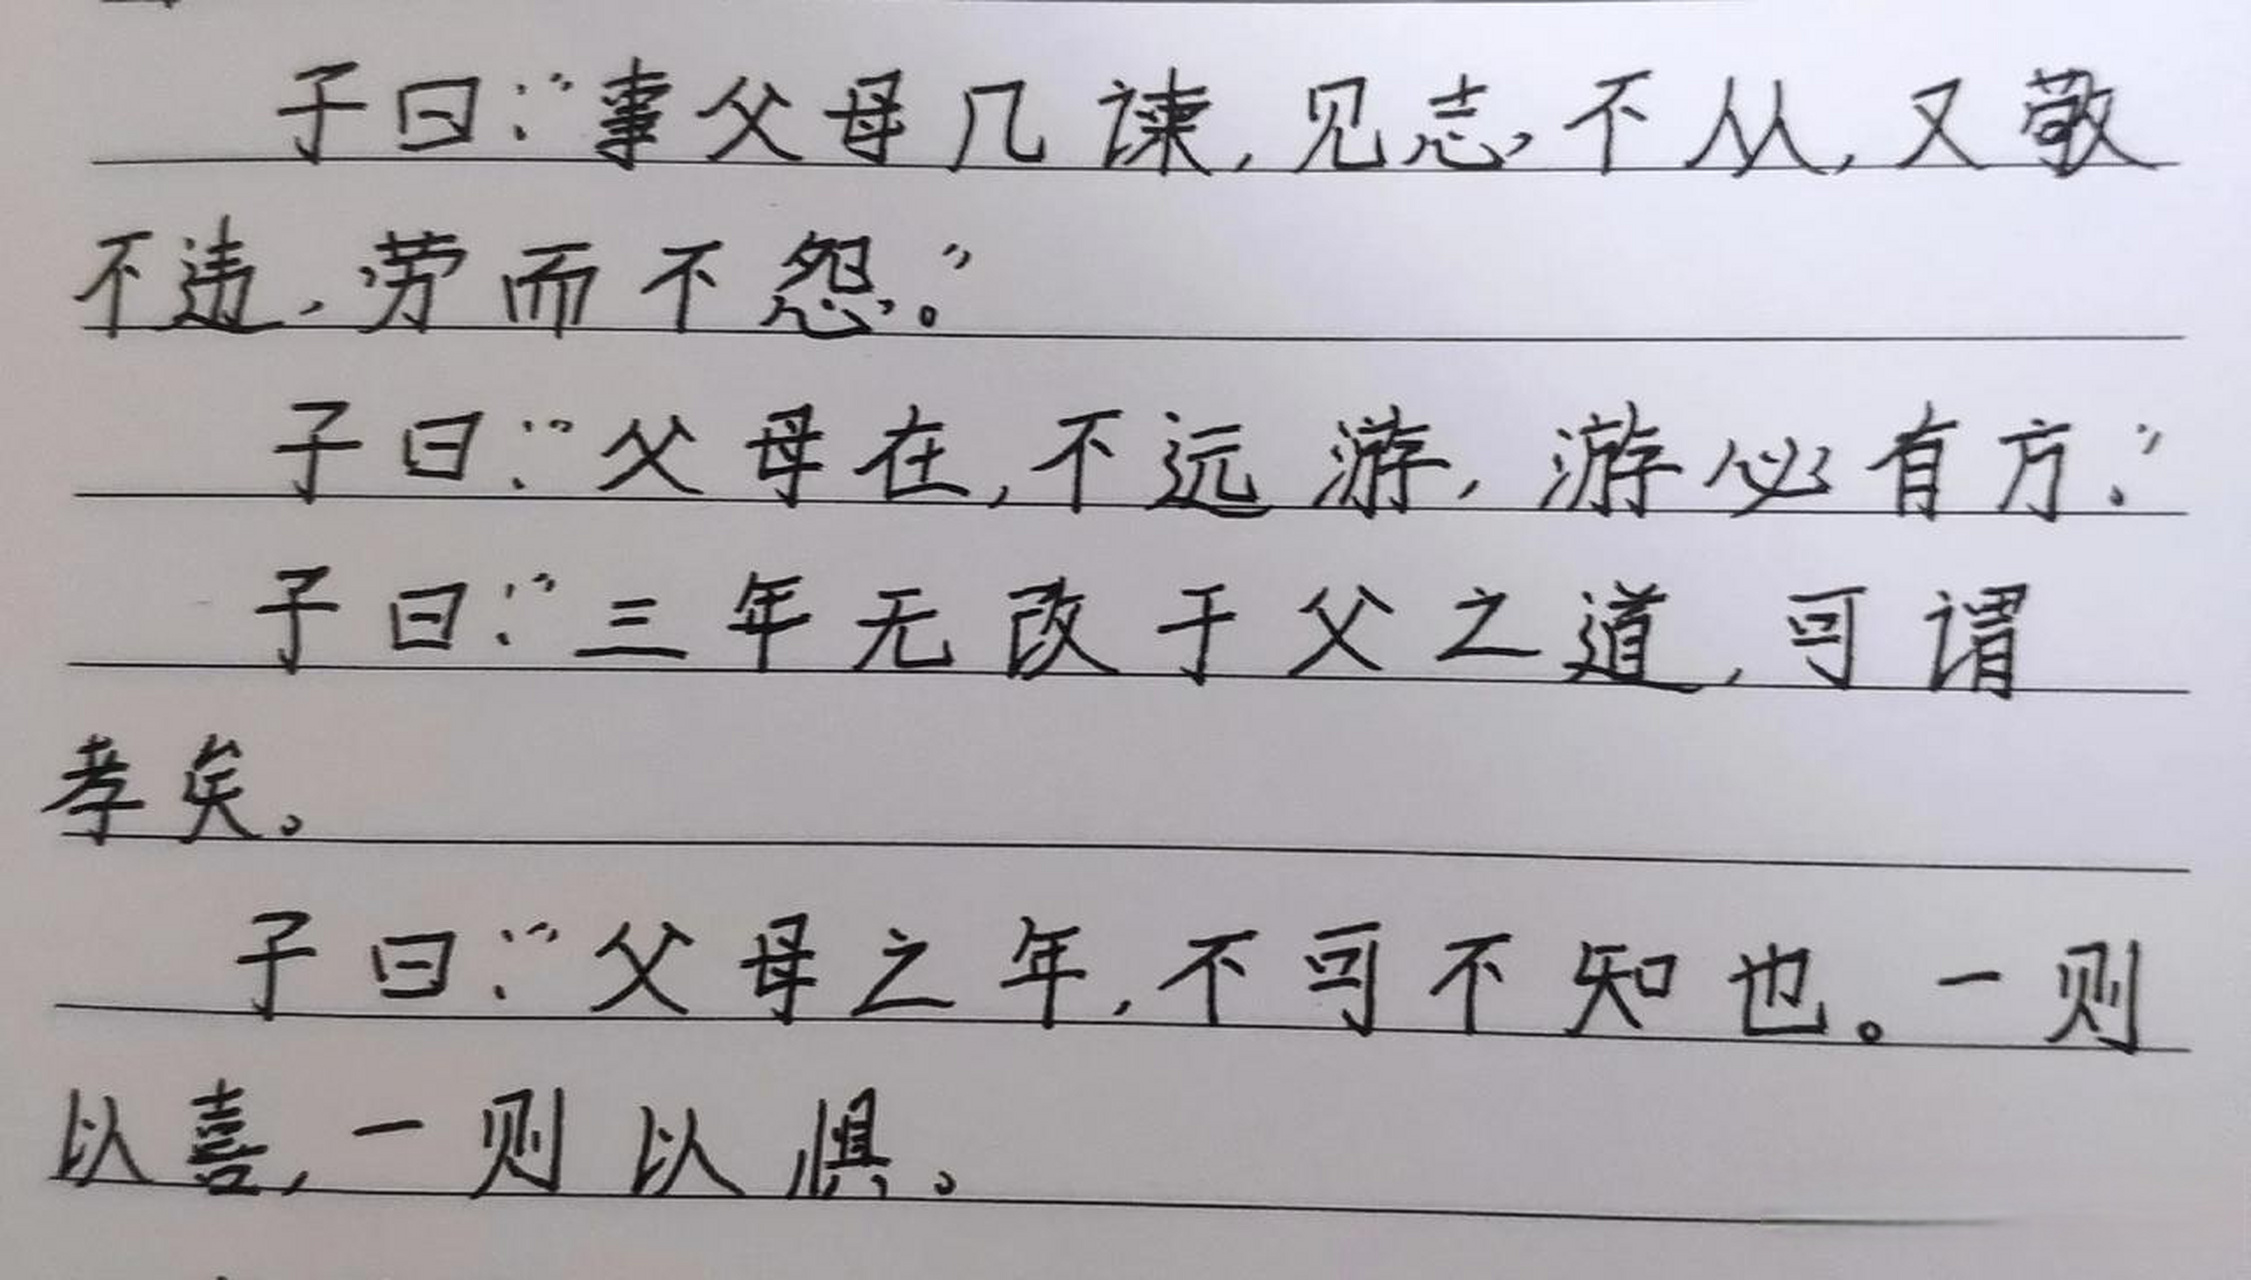 子曰:“事父母几谏,见志不从,又敬
不违,劳而不怨。”
子曰:“父母在,不远游,游必有方.”
子曰:“三年无改于父之道,可谓
孝矣。
子曰:“父母之年,不可不知也。一则
以喜,一则以惧。